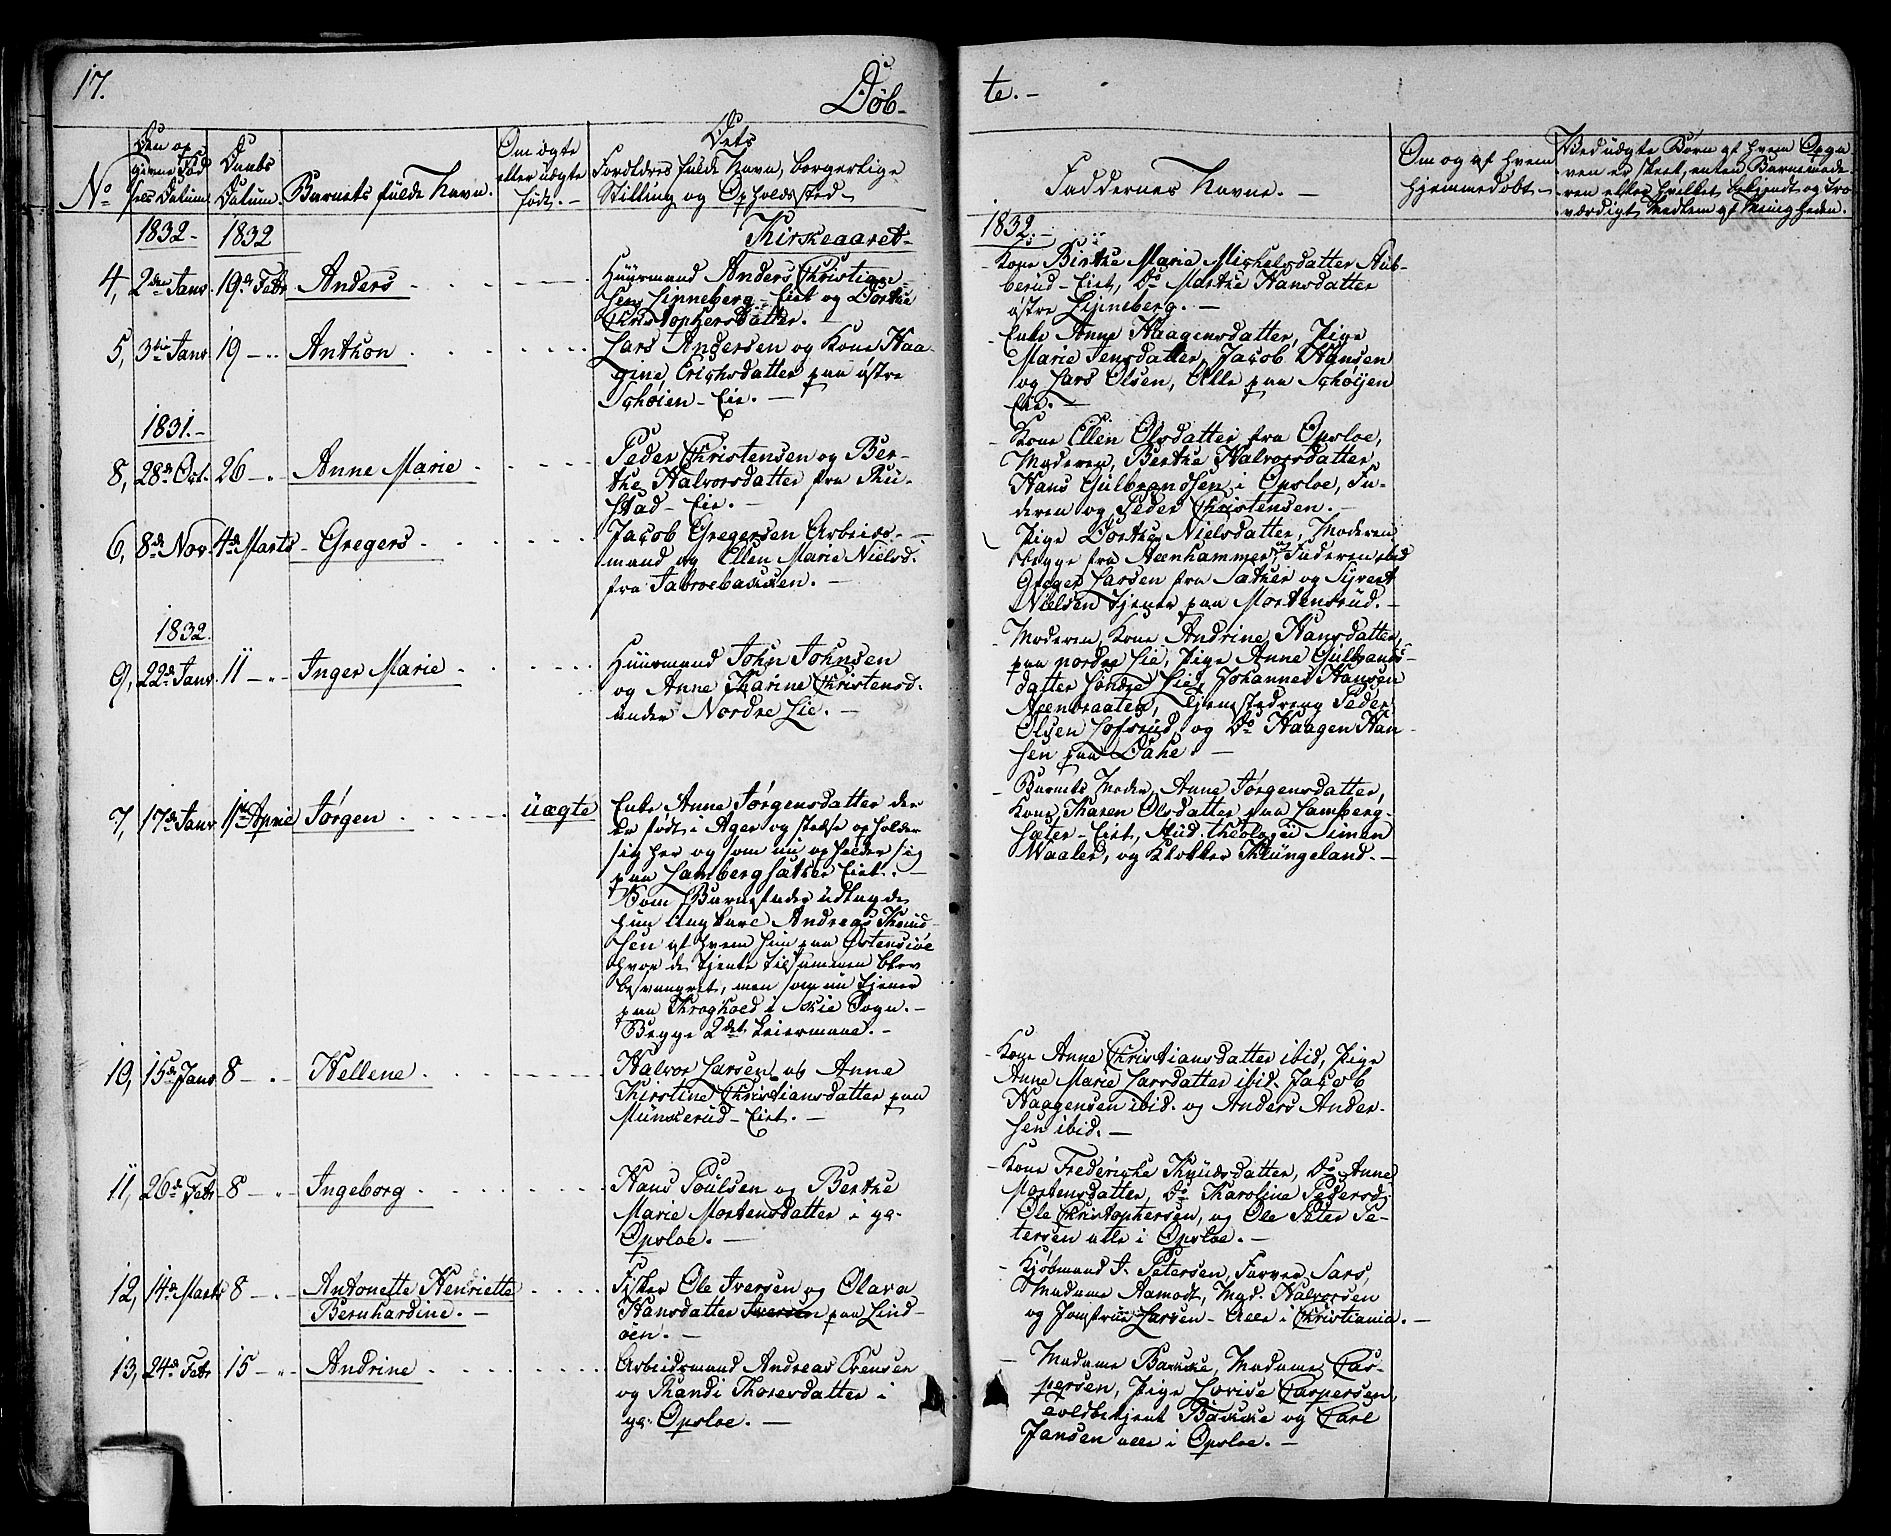 17.
Døb-
te. -
No
Den op
givne Fød
sels Datum
Daabs
Datum.
Barnets fulde Navn.
Om ægte
eller uægte
født. -
Dets
Forældres fulde Navn, borgerlige
Stilling og Opholdssted
Faddernes Navne. -
Om og af hvem
hjemmedøbt. -
Ved uægte Børn af hvem Opgi
ven er skeet, enten Barnemode-
ren eller hvilket bekjendt og tro
værdigt Medlem af Menigheden.
1832. 1832
Kirkeaaret-
1832. -
4, 2den Janv 19de Febr Anders
Huusmand Anders Christian-
sen Linneberg-Eiet og Dorthe
Christophersdatter. -
- Kone Birthe Marie Mickelsdatter Aub-
berud-Eiet, Do Marthe Hansdatter
østre Linneberg. -
5, 3die Janv 19 - " Anthon
Lars Andersen og Kone Haa-
gine Erichsdatter paa østre
Schøien-Eie. -
- Enke Anne Haagensdatter, Pige
Marie Jensdatter, Jacob Hansen
og Lars Olsen, Alle paa Schøijen
Eie. -
1831. -
8, 28de Oct. 26 - " Anne Marie
Peder Christensen og Ber-
the Halvorsdatter fra Ru-
stad-Eie. -
- Kone Ellen Olsdatter fra Opsloe,
Moderen, Berthe Halvorsdatter,
Hans Gulbrandsen i Opsloe, Fa-
deren og Peder Christensen. -
6, 8de Nov. 4de Marts - Gregers
Jacob Gregersen Arbeids-
mand og Ellen Marie Nielsd.
fra Tabroebakken. -
Pige Dorthe Nielsdatter, Moderen
begge fra Steenhammer og Faderen ibid
Greger Larsen fra Sæther og Syvert
Nielsen tjener paa Mortensrud. -
1832.
9, 22de Janv. 11 - " Inger Marie
Huusmand John Johnsen
og Anne Karine Christensd.
under Nordre Lie. -
- Moderen, Kone Andrine Hansdatter,
paa nordre Lie, Pige Anne Gulbrands-
datter søndre Lie, Johannes Hansen
Steenbraaten, Tjenstedreng Peder
Olsen Lofsrud, og Do Haagen Han-
sen paa Bake. -
7, 17de Janv 1ste April Jørgen
uægte
Enke Anne Jørgensdatter der
er født i Ager og stedse opholder
sig her og som nu opholder sig
paa Lambergsæther Eiet. -
Som Barnefader udlagde
hun Ungkarl Andreas Knud-
sen af hvem hun paa Østensiøe
hvor de tjente tilsammen blev
besvangret, men som nu tjener
paa Kroghoed i Skie Sogn. -
Begge 2det Leiermaal. -
- Barnets Moder, Anne Jørgensdatter,
Kone, Karen Olsdatter paa Lamberg-
sæter-Eiet, Stud. theologiæ Simen
Waaler, og Klokker Klungeland. -
10, 15de Janv 8 - " Hellene
Halvor Larsen og Anne
Kirstine Christiansdatter paa
Munkerud-Eiet. -
- Kone Anne Christiansdatter ibid, Pige
Anne Marie Larsdatter ibid. Jacob
Haagensen ibid. og Anders Ander-
sen ibid. -
11, 26de Febr 8 - " Ingeborg
Hans Poulsen og Berthe
Marie Mortensdatter i ga-
Opsloe. -
- Kone Frederiche Knudsdatter, Do Anne
Mortensdatter, Do Karoline Pedersd.
Ole Christophersen, og Ole Peter Pe-
tersen alle i Opsloe. -
12, 14de Marts 8 - " Antonette Henriette
Bernhardine. -
Fisker Ole Iversen og Olava
Hansdatter Iversen paa Lind-
øen. -
- Kjøbmand J. Petersen, Farver Sars,
Madame Aamodt, Mad. Halvorsen
og Jomfrue Larsen - Alle i Christiania. -
13, 24de Febr 15 - " Andrine
Arbeidsmand Andreas Evensen
og Randi Thoresdatter i
ga- Opsloe. -
- Madame Bakke, Madame Cas-
persen, Pige Lovise Caspersen,
Toldbetjent Bakke og Carl
Jansen alle i Opsloe. -